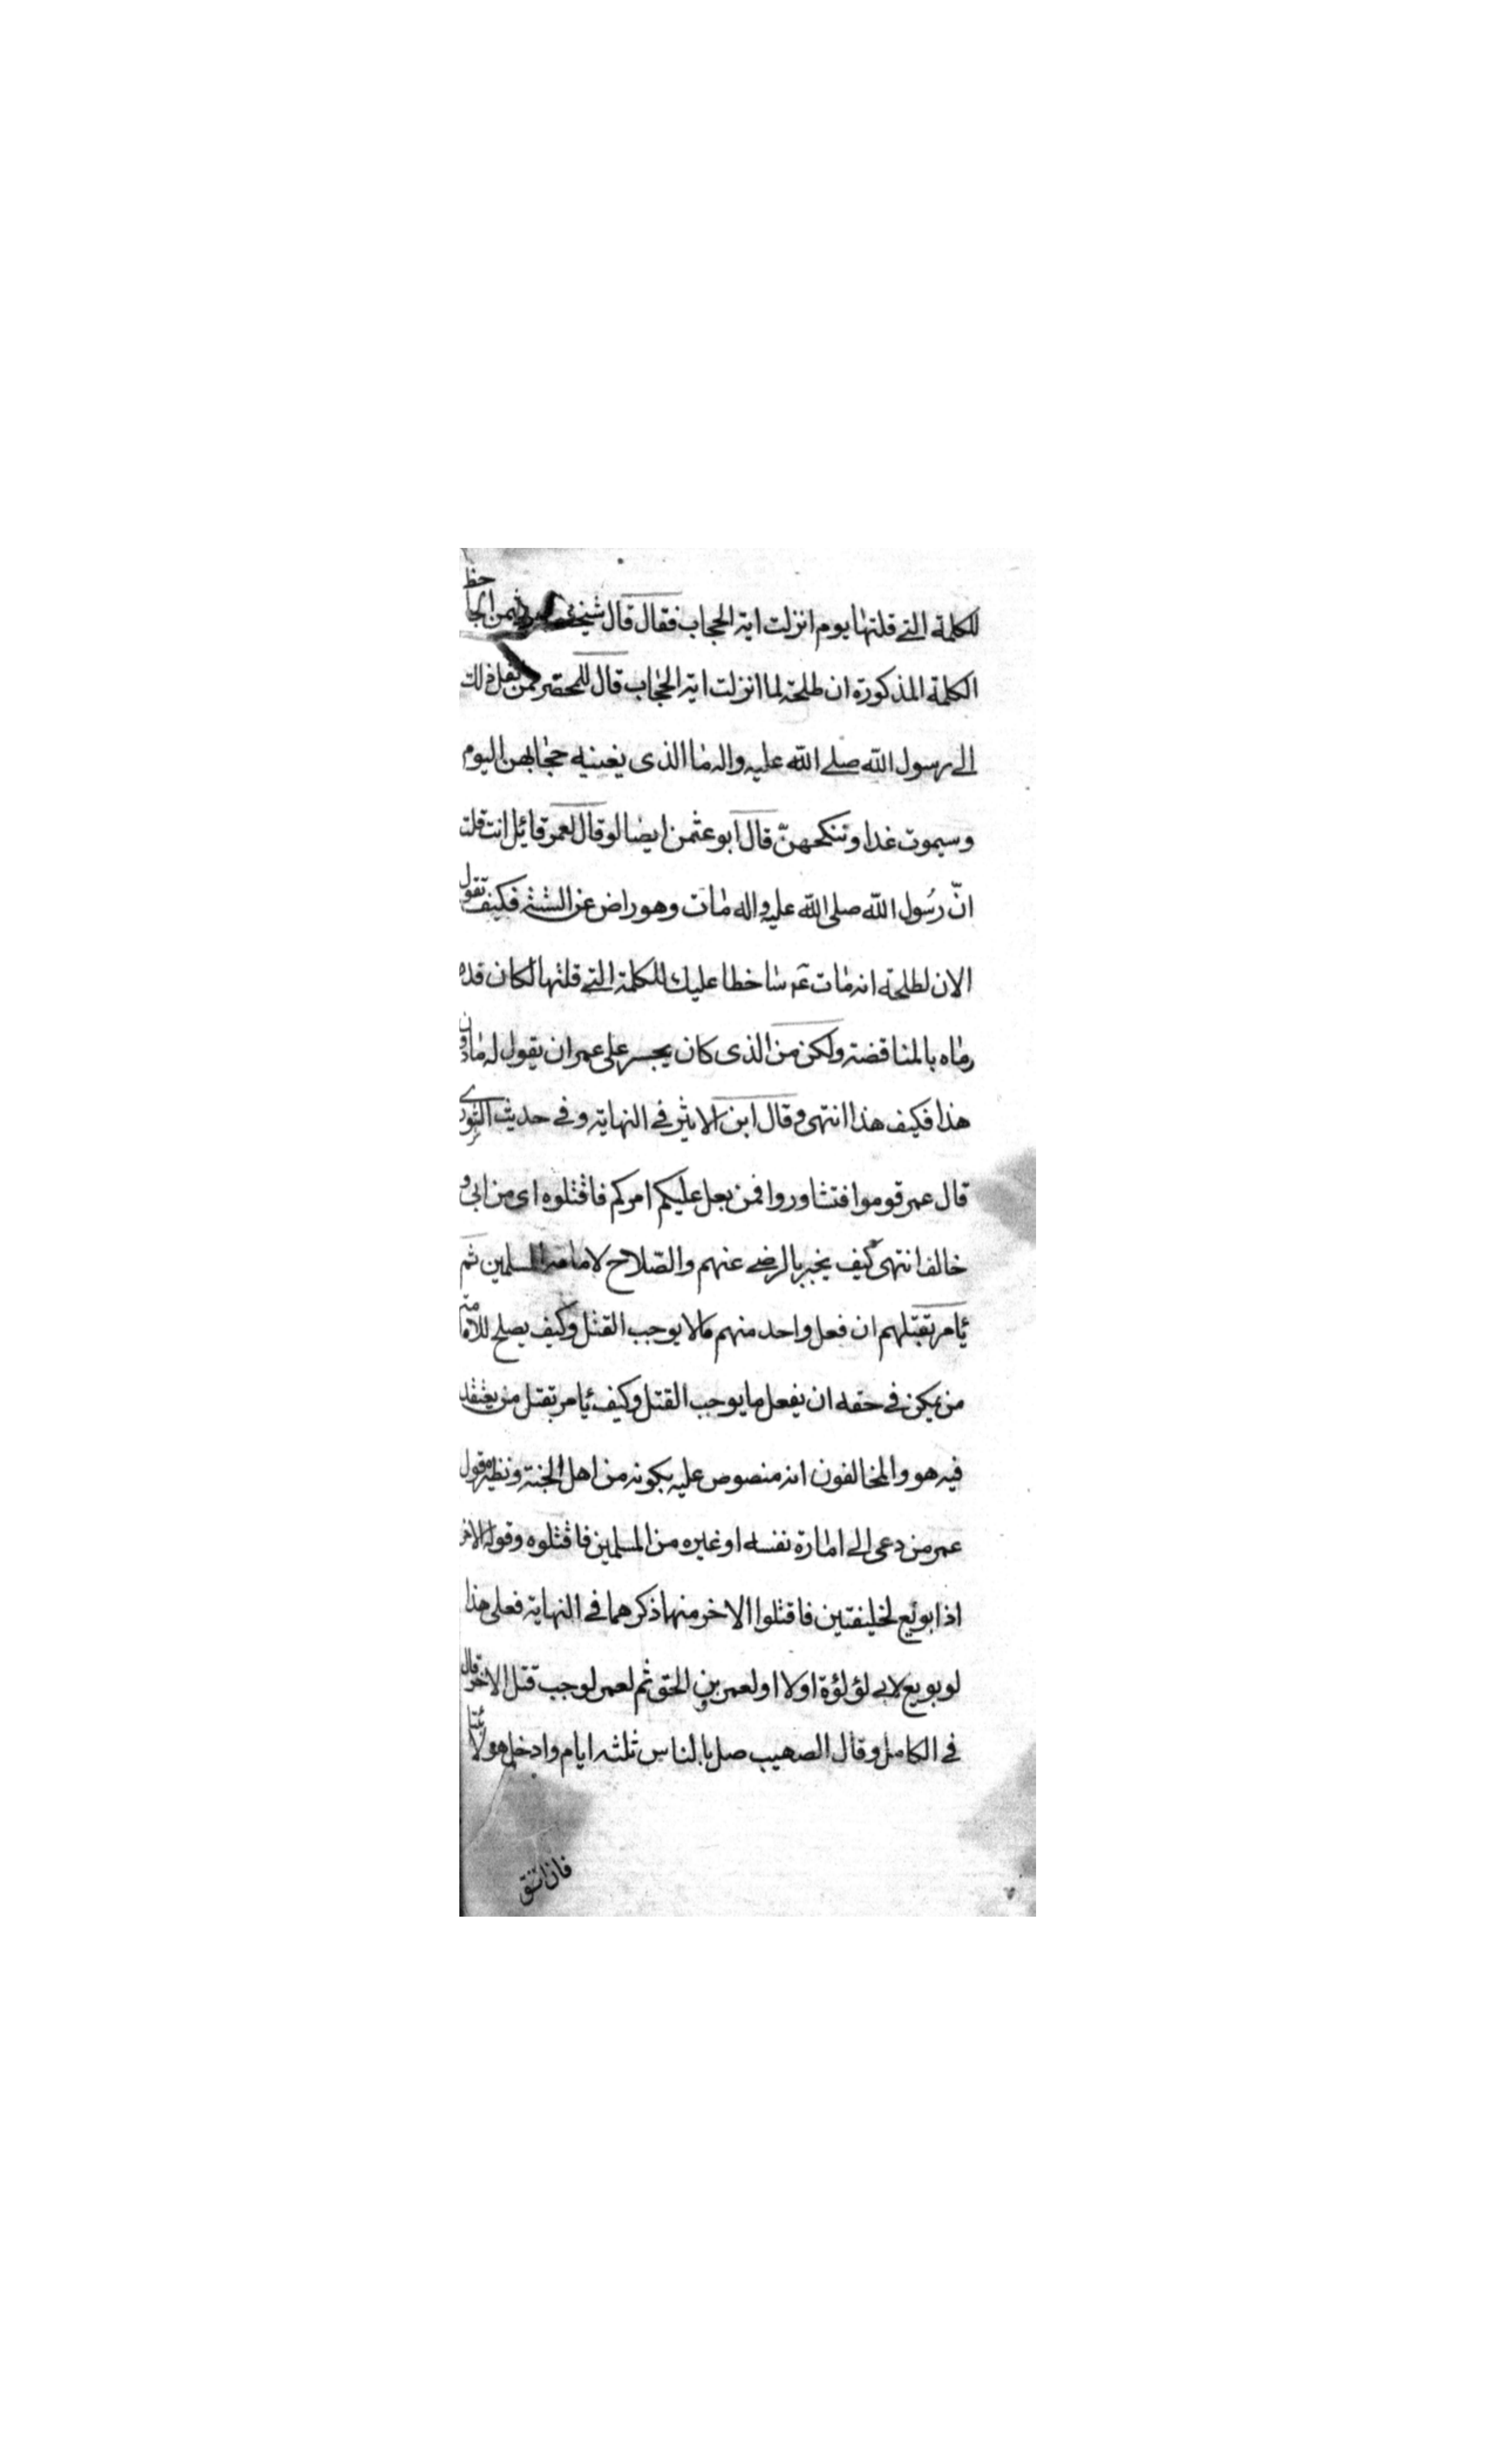 للكلمة التي قلتها يوم انزلت اية الحجاب فقال قال شيخنا ابو عثمن الجاحظ
الكلمة المذكورة ان طلحة لما انزلت اية الحجاب قال للمحضر ممن نقل ذلك
الى رسول الله صلى الله عليه واله ما الذى يغنيه حجابهن اليوم
وسيموت غدا وتنكحهنّ قال ابو عثمن ايضا لو قال لعمر قائل انت قلت
انّ رسُول الله صلى الله عليه واله مات وهو راض عن الستة فكيف تقول
الان لطلحة انه مات عم ساخطا عليك للكلمة التي قلتها لكان قد
رماه بالمناقضة ولكن من الذى كان يجسر على عمر ان يقول له مادون
هذا فكيف هذا انتهى وقال ابن الاثير في النهاية وفي حديث الشورى
قال عمر قوموا فتشاوروا فمن بعل عليكم امركم فاقتلوه اى من ابى و
خالف انتهى كيف يخبر بالرضى عنهم والصّلاح لامامة المسلمين ثم
يأمر بقتلهم ان فعل واحد منهم مالا يوجب القتل وكيف يصلح للامامة
من يمكن في حقه ان يفعل ما يوجب القتل وكيف يأمر بقتل من يعتقد
فيه هو والمخالفون انه منصوص عليه بكونه من اهل الجنة ونظيره قول
عمر من دعى الى امارة نفسه او غيره من المسلمين فاقتلوه وقوله الاخر
اذا بويع لخليفتين فاقتلوا الاخر منهما ذكرهما في النهاية فعلى هذا
لو بويع لابي لؤلؤة اولا او لعمرو بن الحمق ثم لعمر لوجب قتل الاخر قال
في الكامل وقال الصهيب صل بالناس ثلثه ايام وادخل هولاء
فان اتفق